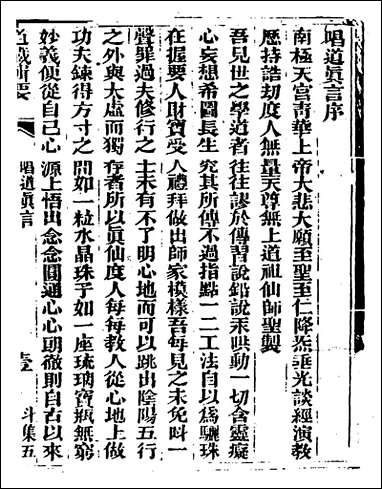 唱道眞言序
南極天宮靑華上帝大悲大願至聖至仁降炁垂光談經演敎
歷持誥刼度人無量天尊無上道祖仙師聖製
吾見世之學道者往往謬於傳習說鉛說汞哄動一切含靈癡
心妄想希圖長生究其所傳不過指點一二工法自以爲驪珠
在握要人財寶受人禮拜做出師家模樣吾每見之未免呌一
聲罪過夫修行之士未有不了明心地而可以跳出陰陽五行
之外與太虛而獨存者所以眞仙度人每每敎人從心地上做
功夫鍊得方寸之間如一粒水晶珠子如一座琉璃寶瓶無窮
妙義便從自己心源上悟出念念圓通心心玥徹則自古以來
道藏輯要
唱道眞言
壹
斗集五